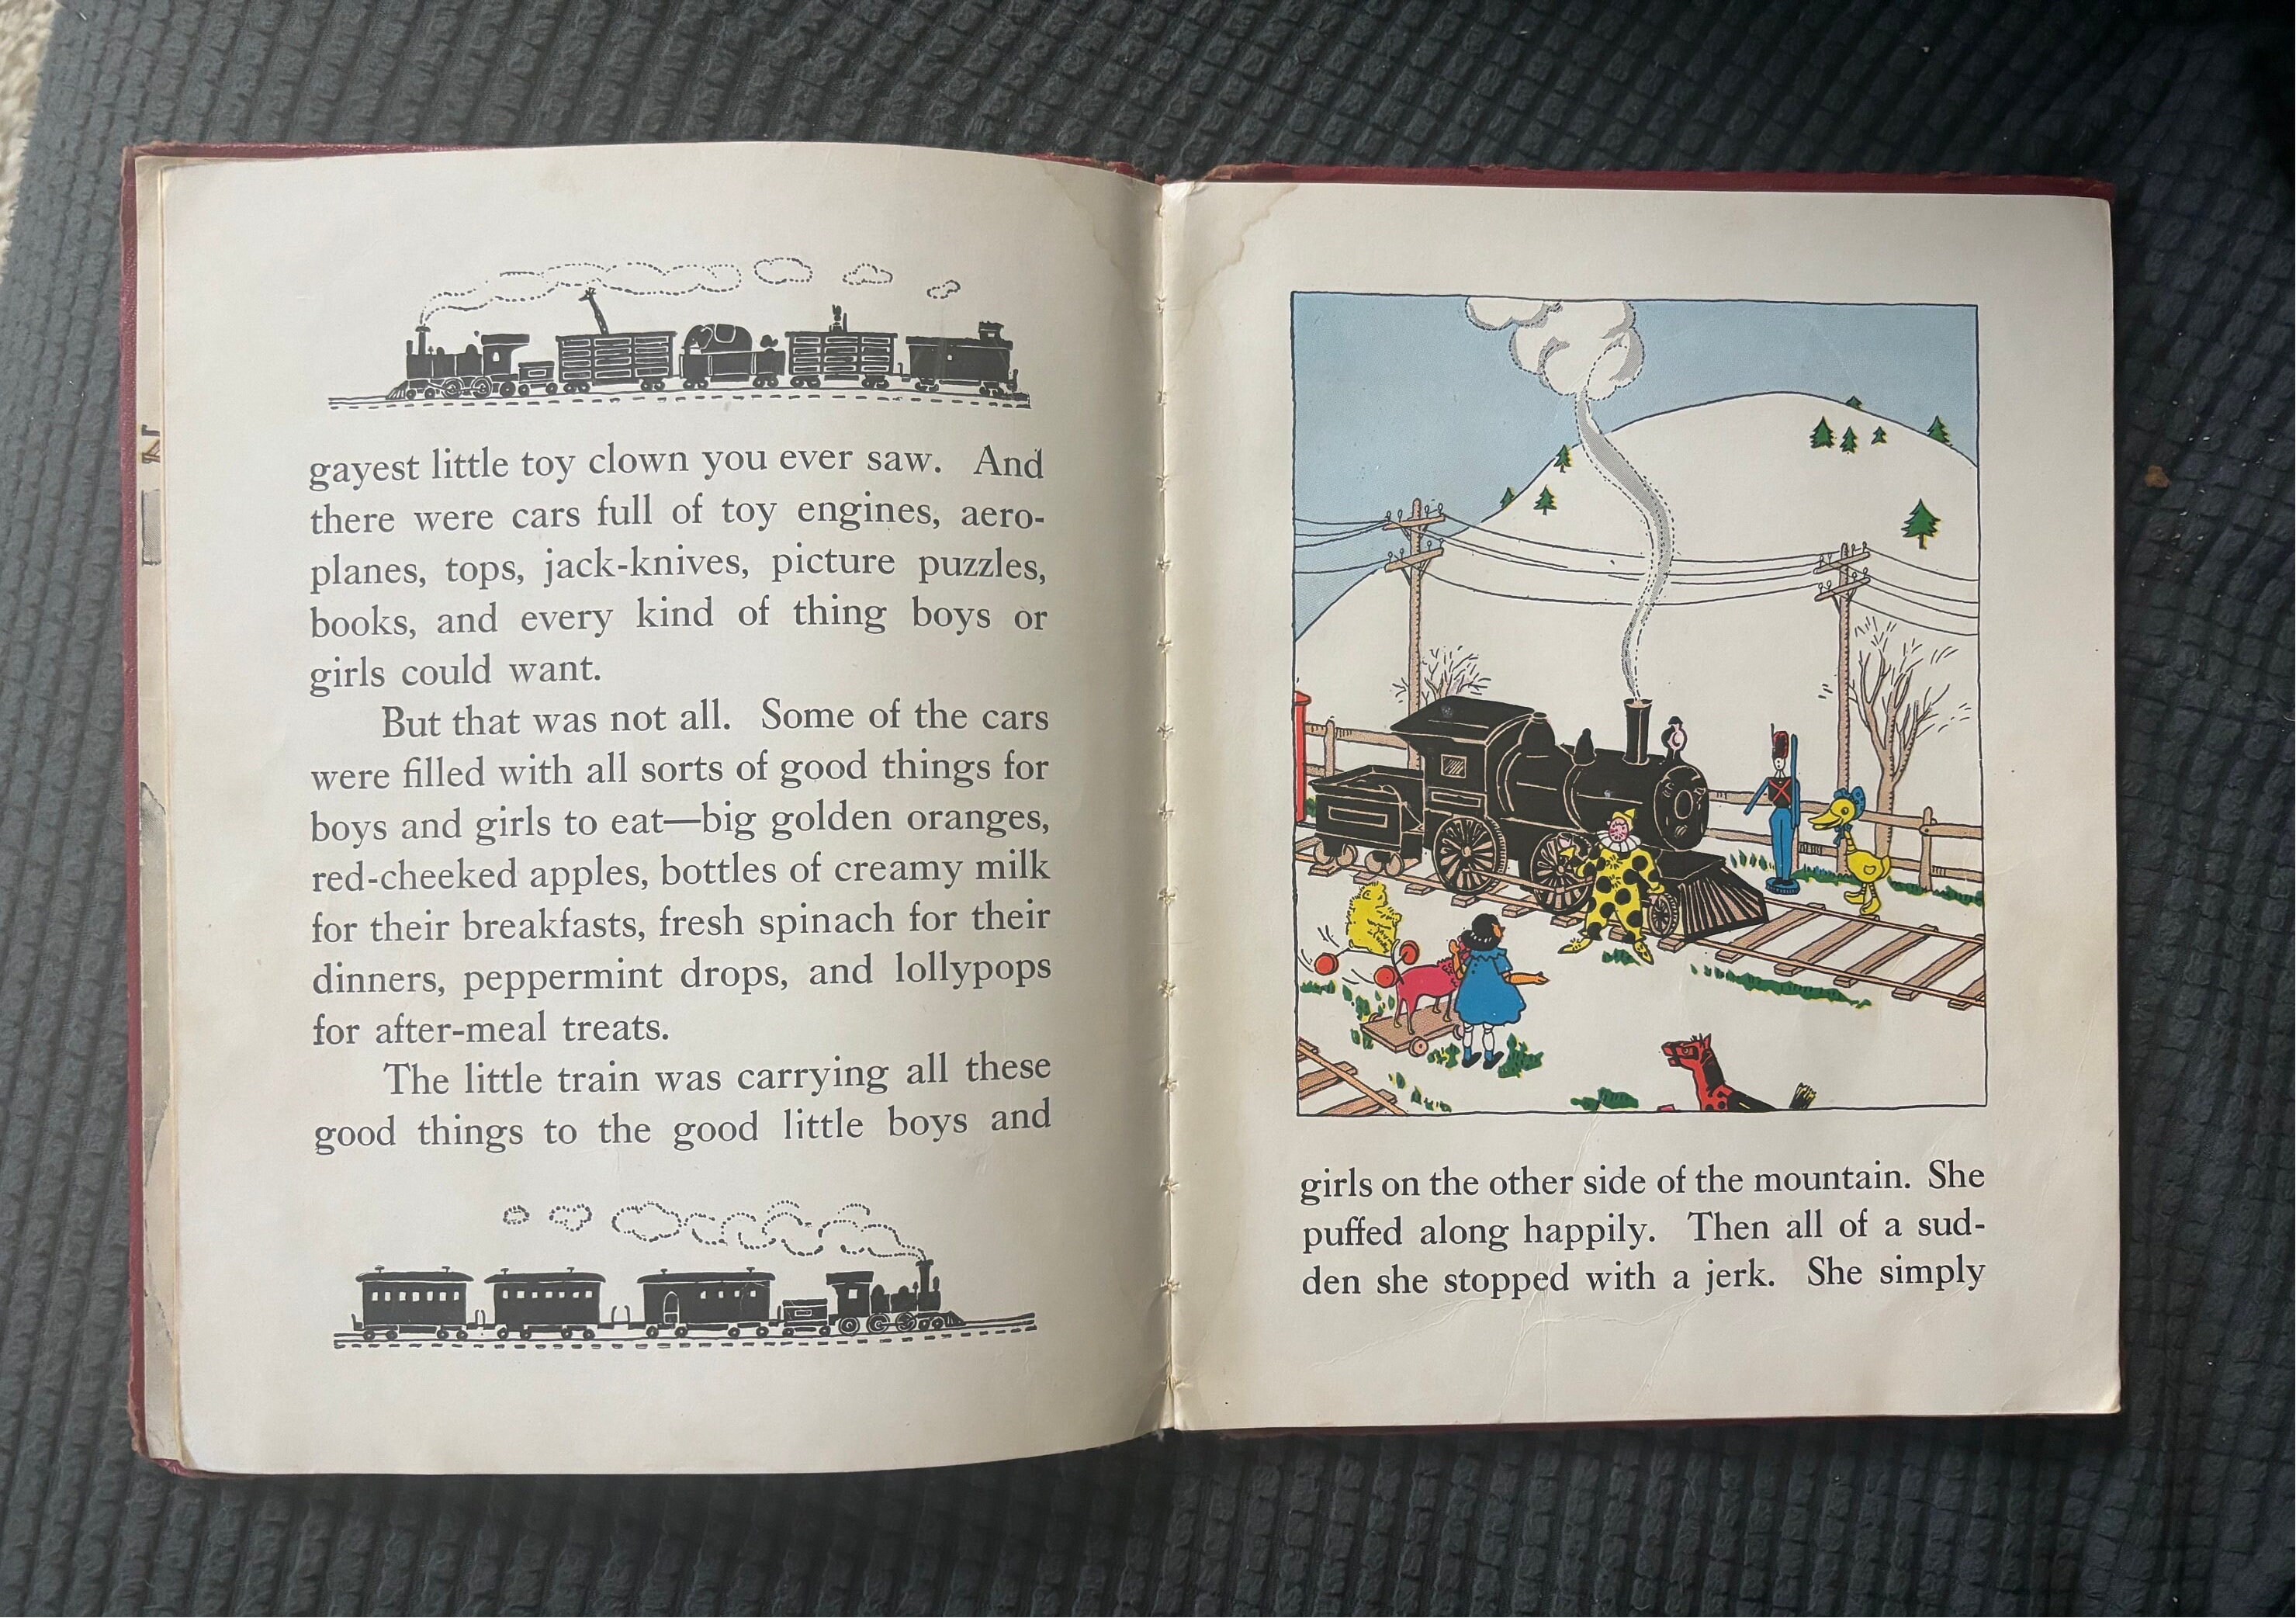 gayest little toy clown you ever saw. And
there were cars full of toy engines, aero-
planes, tops, jack-knives, picture puzzles,
books, and every kind of thing boys or
girls could want.
But that was not all. Some of the cars
were filled with all sorts of good things for
boys and girls to eat—big golden oranges,
red-cheeked apples, bottles of creamy milk
for their breakfasts, fresh spinach for their
dinners, peppermint drops, and lollypops
for after-meal treats.
The little train was carrying all these
good things to the good little boys and
girls on the other side of the mountain. She
puffed along happily. Then all of a sud-
den she stopped with a jerk. She simply